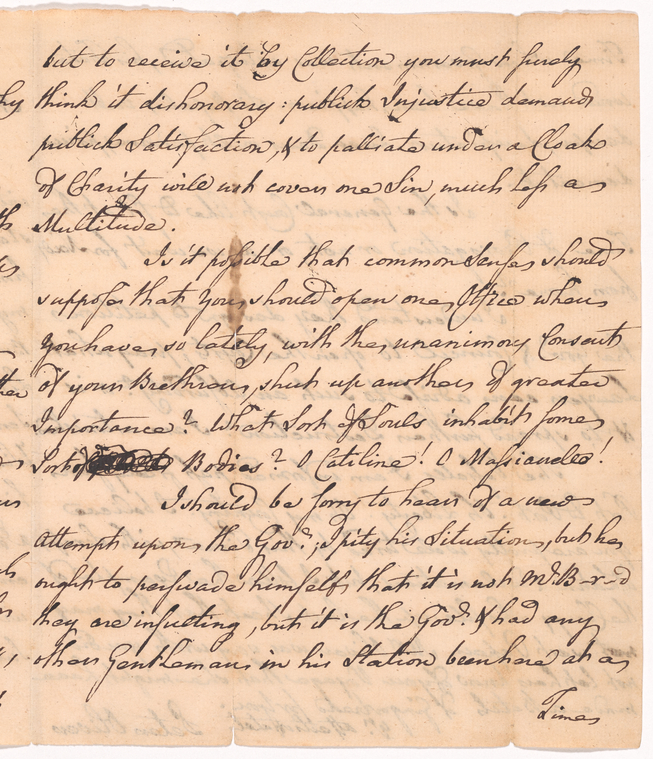 but to receive it by Collection you must surely
think it dishonorary: publick Injustice demands
publick Satisfaction, & to palliate under a Cloak
of Charity will not cover one Sin, much less a
Multitude.
Is it possible that common Sense should
suppose that you should open one Office when
you have so lately, with the unanimous Consent
of your Brethren, shut up another of greater
Importance? What Sort of Souls inhabit some
Sort of Bodies? O Catiline! O Massianello!
I should be sorry to hear of a new
attempt upon the Govr.; I pity his Situation, but he
ought to perswade himself that it is not Mr. B-r-d
they are insulting, but it is the Govr. & had any
other Gentleman in his Station been here at a
Time